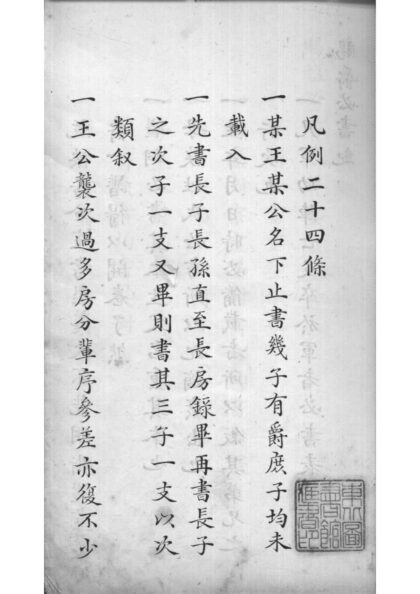 凡例二十四條
一某王某公名下止書幾子有爵庶子均未
載入
一先書長子長孫直至長房錄畢再書長子
之次子一支又畢則書其三子一支以次
類叙
一王公襲次過多房分輩序參差亦復不少